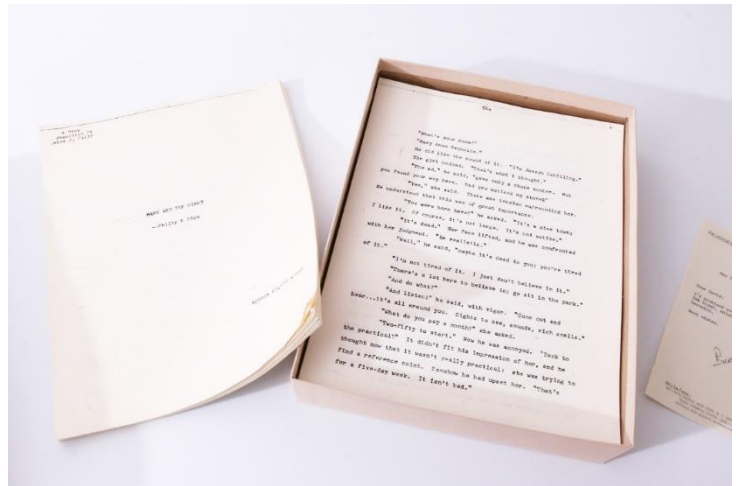 MARY AND THE GIANT
Philip K Dick
"What's your name?"
"Mary Anne Reynolds."
He did like the sound of it. "I'm Joseph Schilling."
The girl nodded. "That's what I thought."
"The ad," he said, "gave only a phone number. But
you found your way here. Had you noticed my store?"
"Yes," she said. There was tension surrounding her.
He understood that this was of great importance.
"You were born here?" he asked. "It's a nice town;
I like it. Of course, it's not large. It's not active."
"It's dead." Her face lifted, and he was confronted
with her judgment. "Be realistic."
"Well," he said, "maybe it's dead to you; you're tired
of it."
"I'm not tired of it. I just don't believe in it."
"There's a lot here to believe in; go sit in the park."
"And do what?"
"And listen!" he said, with vigor. "Come out and
hear...it's all around you. Sights to see, sounds, rich smells."
"What do you pay a month?" she asked.
"Two-fifty to start." Now he was annoyed. "Back to
the practical?" It didn't fit his impression of her, and he
thought now that it wasn't really practical; she was trying to
find a reference point. Somehow he had upset her. "That's
for a five-day week. It isn't bad."